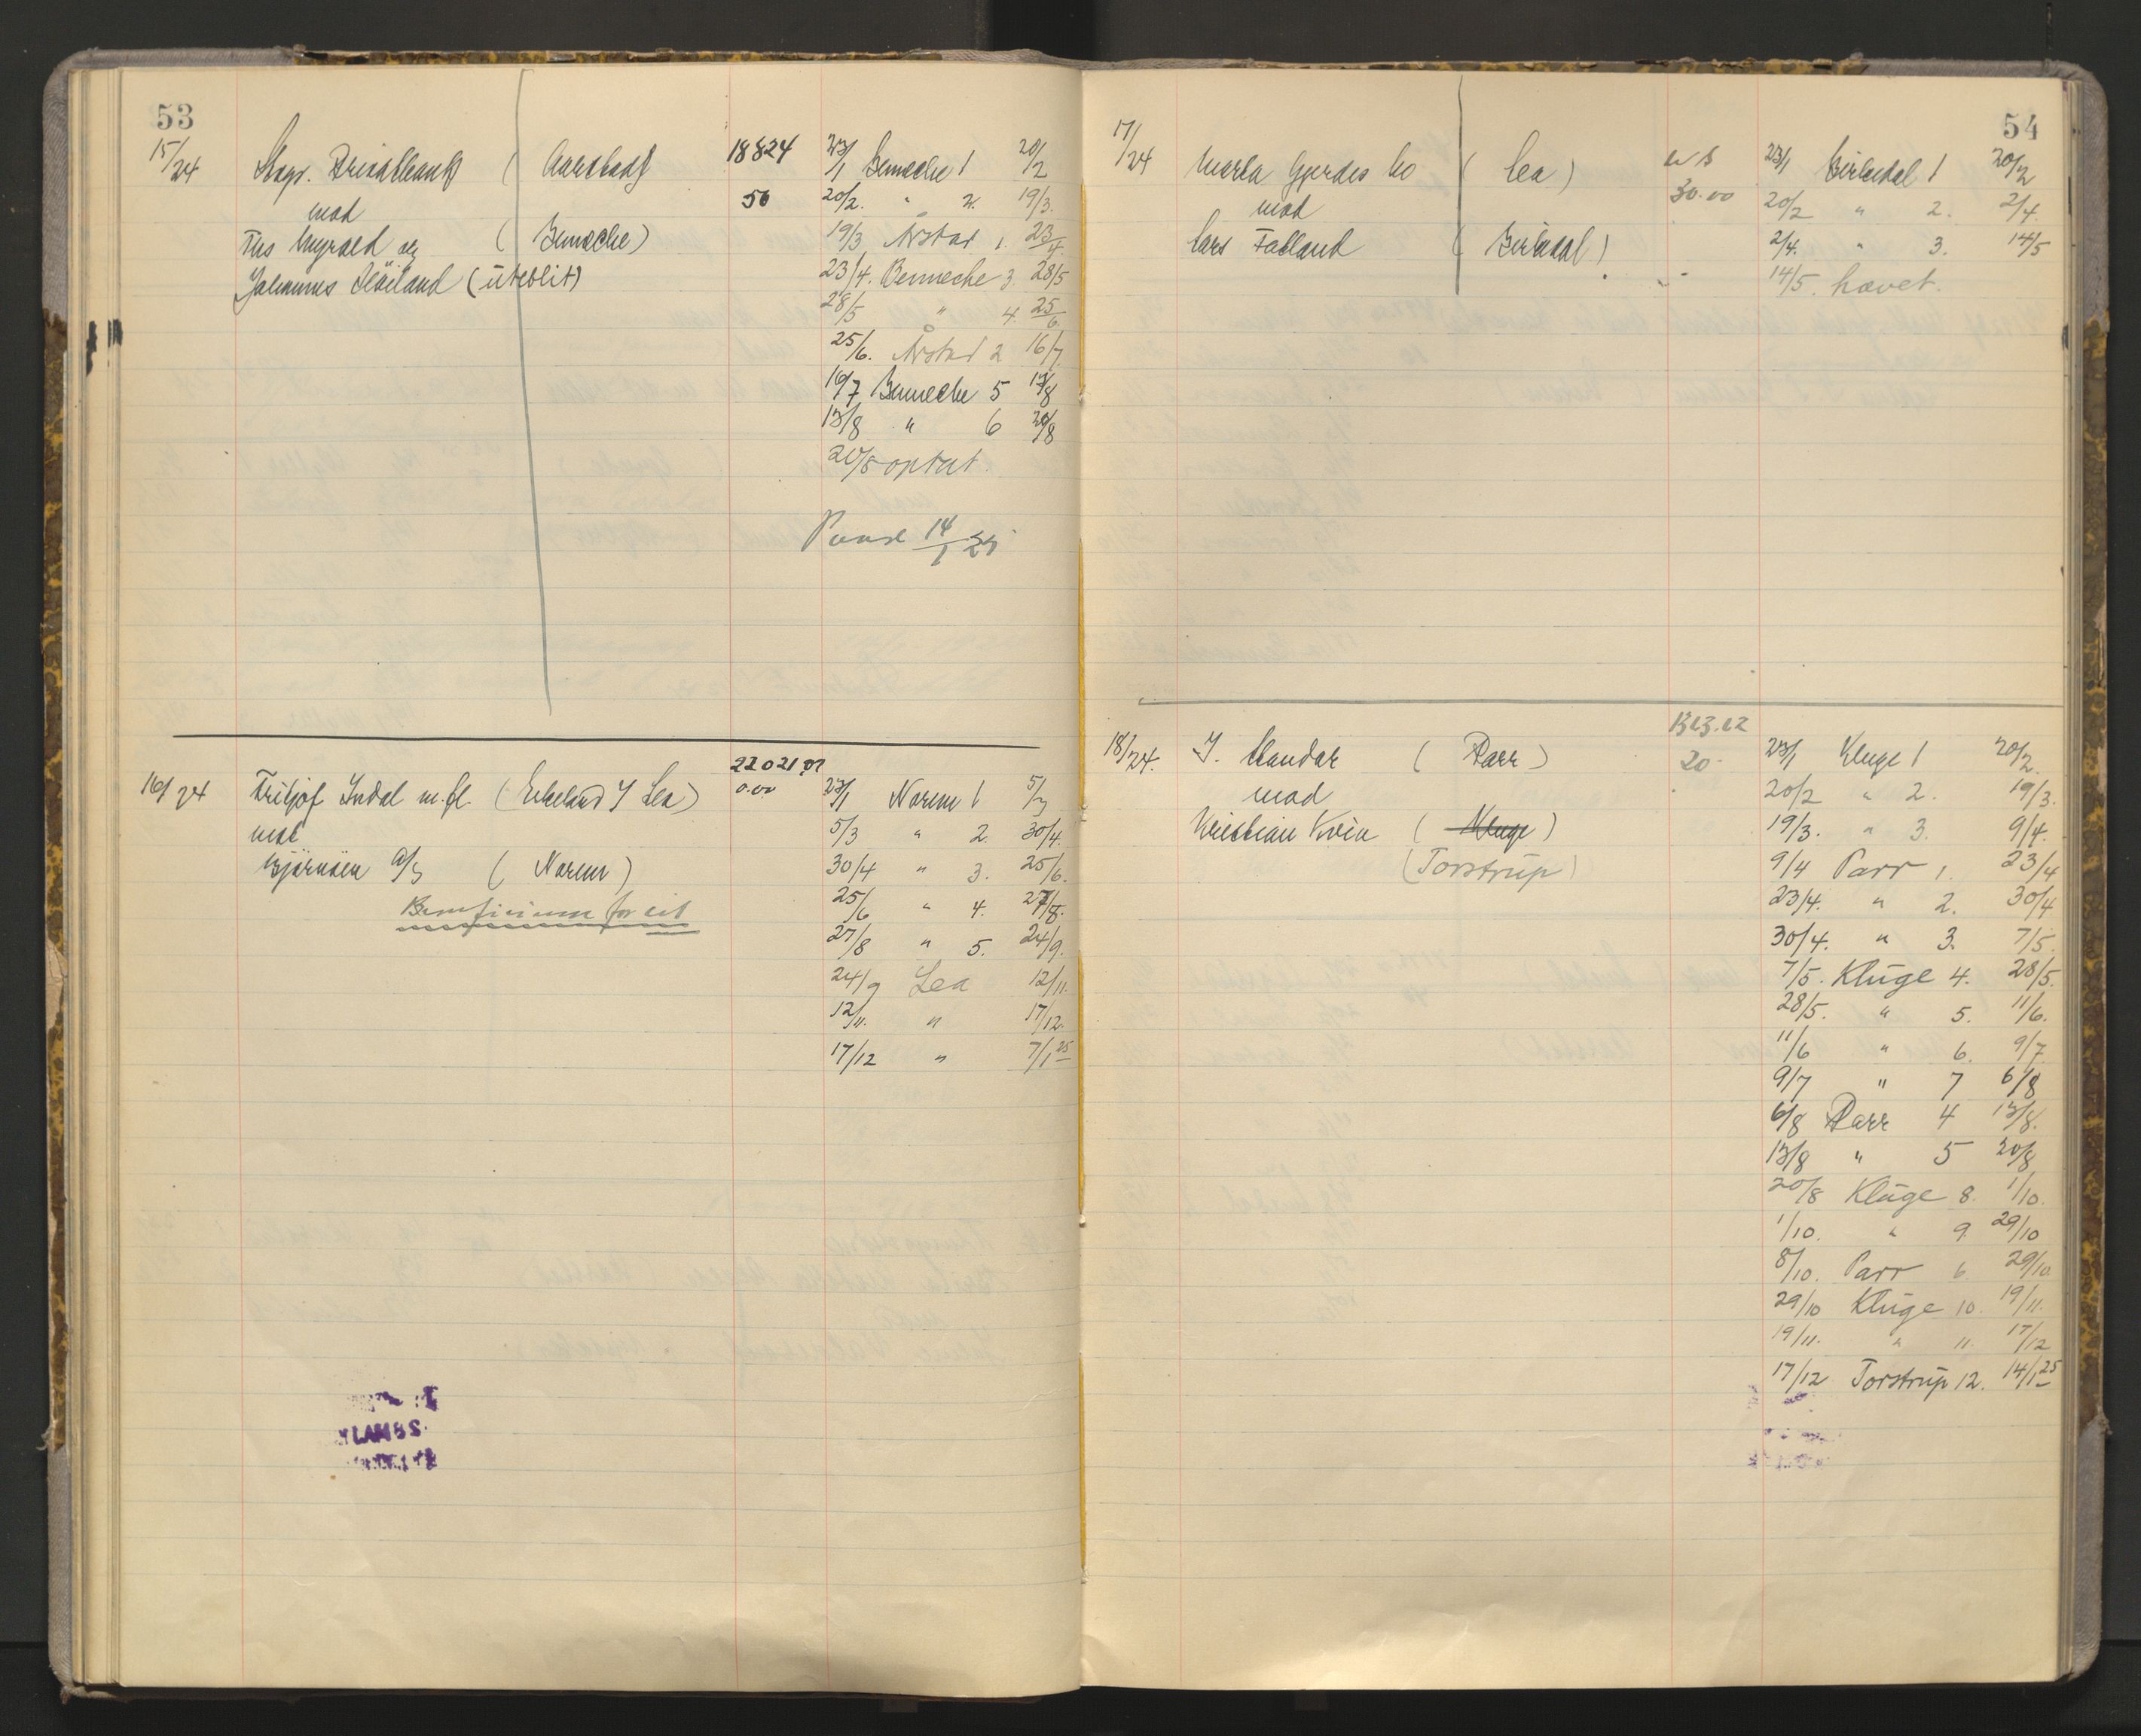 53
15/24 Stagr. Privatbank ( Aarstad) 18824 23/1 Benneche 1 20/2
mod 50 20/2. " 2. 19/3.
( Benneche) 19/3 Årstad 1. 23/4
Johannes (uteblit) 23/4. Benneche 3. 28/5
28/5 " 4. 25/6.
25/6. Årstad 2 16/7
16/7 Benneche 5 13/8
13/8 " 6 20/8
20/8 optat.
14/1 25
16/24 Fritjof Indal m.fl. (Erkeland & Lea) 0.00 23/1 Norem 1 5/3
mod 5/3 " 2. 30/4.
Bjørnøen A/S ( Norem ) 30/4 " 3. 25/6.
Beneficium for cit 25/6 " 4. 27/8.
27/8 " 5. 24/9.
24/9 Lea 12/11.
12/11. " 17/12.
17/12 " 7/1 25
54
17/24 Gjerdes Co ( Lea ) 23/1 Birkedal 1 20/2
mod 30.00 20/2 " 2. 2/4.
Lars Falland ( Birkedal ) 2/4. " 3. 14/5
14/5. hævet.
18/24. J. Standar ( Parr ) 23/1 Kluge 1 20/2.
mod 20.- 20/2 " 2. 19/3.
Kristian Kvia ( Kluge ) 19/3. " 3. 9/4.
(Torstrup) 9/4 Parr 1. 23/4
23/4. " 2. 30/4
30/4. " 3. 7/5.
7/5. Kluge 4. 28/5.
28/5. " 5. 11/6.
11/6 " 6. 9/7
9/7 " 7 6/8
6/8 Parr 4 13/8.
13/8 " 5 20/8
20/8 Kluge 8. 1/10.
1/10. " 9. 29/10
8/10. Parr 6. 29/10.
29/10 Kluge 10. 19/11.
19/11. " 11. 17/12
17/12 Torstrup 12. 14/1 25